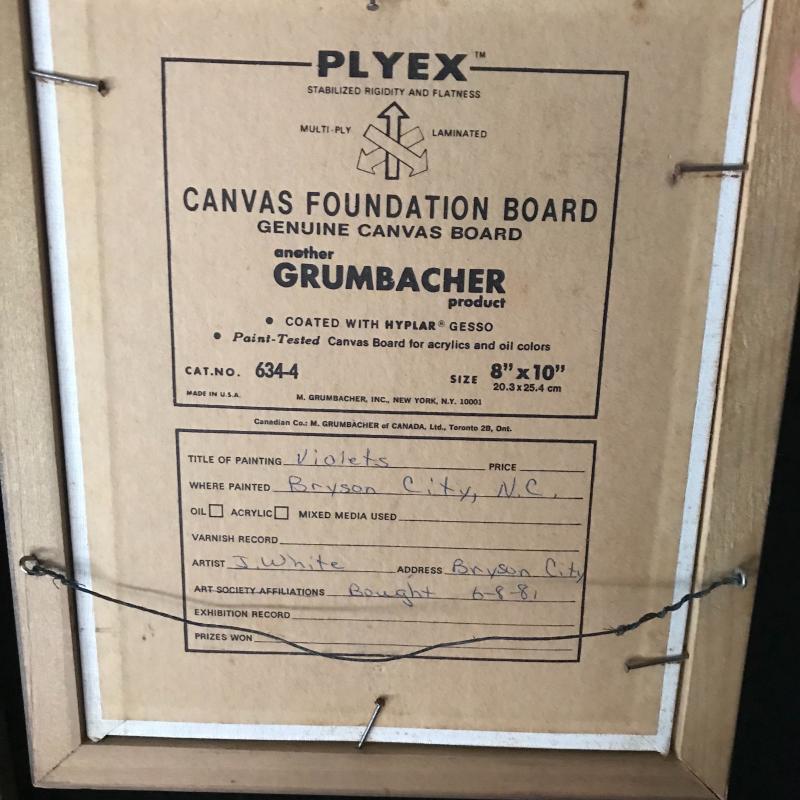 PLYEX™
STABILIZED RIGIDITY AND FLATNESS
MULTI-PLY LAMINATED
CANVAS FOUNDATION BOARD
GENUINE CANVAS BOARD
another
GRUMBACHER
product
• COATED WITH HYPLAR® GESSO
• Paint-Tested Canvas Board for acrylics and oil colors
CAT.NO. 634-4 SIZE 8" x 10"
20.3 x 25.4 cm
MADE IN U.S.A. M. GRUMBACHER, INC., NEW YORK, N.Y. 10001
Canadian Co.: M. GRUMBACHER of CANADA, Ltd., Toronto 2B, Ont.
TITLE OF PAINTING Violets PRICE
WHERE PAINTED Bryson City, N.C.
OIL ACRYLIC MIXED MEDIA USED
VARNISH RECORD
ARTIST J. White ADDRESS Bryson City
ART SOCIETY AFFILIATIONS Bought 6-8-81
EXHIBITION RECORD
PRIZES WON